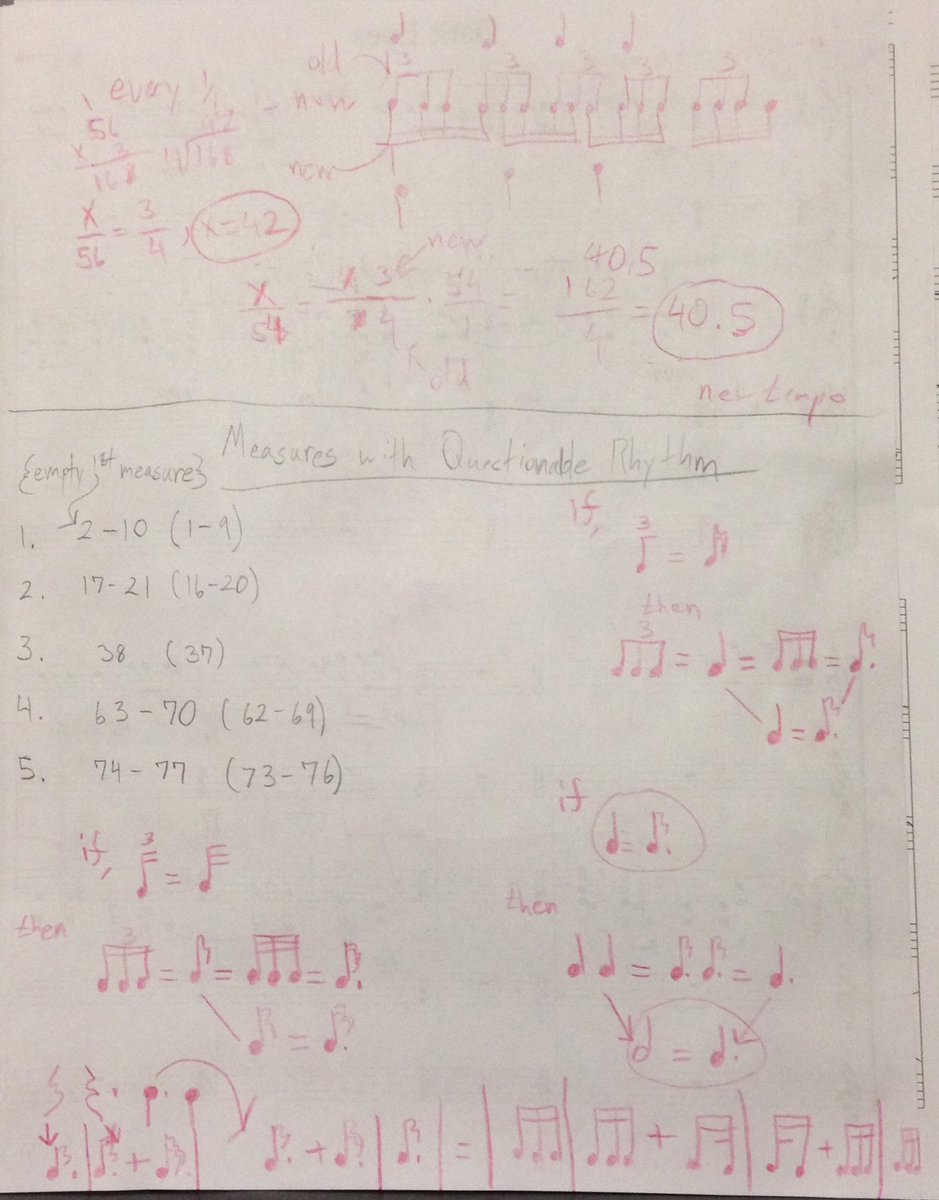 old
3 3 3 3 3
every 1/4
now
56
x 3
168
4√168
new
x/56 = 3/4, x=42
new
x/54 = 3/4 · 54 = 162/4 = 40.5
40.5
old
new tempo
{empty 1st measure}
Measures with Questionable Rhythm
1. 2-10 (1-9)
2. 17-21 (16-20)
3. 38 (37)
4. 63-70 (62-69)
5. 74-77 (73-76)
if,
3
=
then
3
= = =
=
if
=
then
= =
=
if, 3
=
then
3
= = =
=
+ + = + +